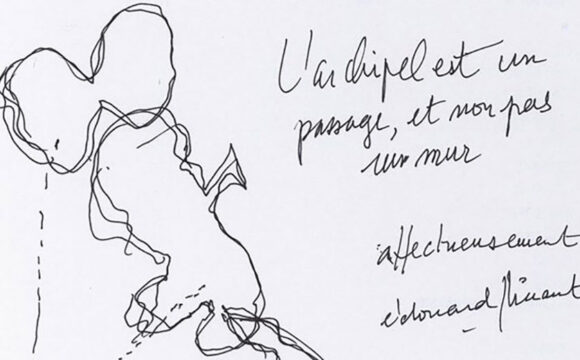 L'archipel est un
passage, et non pas
un mur
affectueusement
édouard glissant